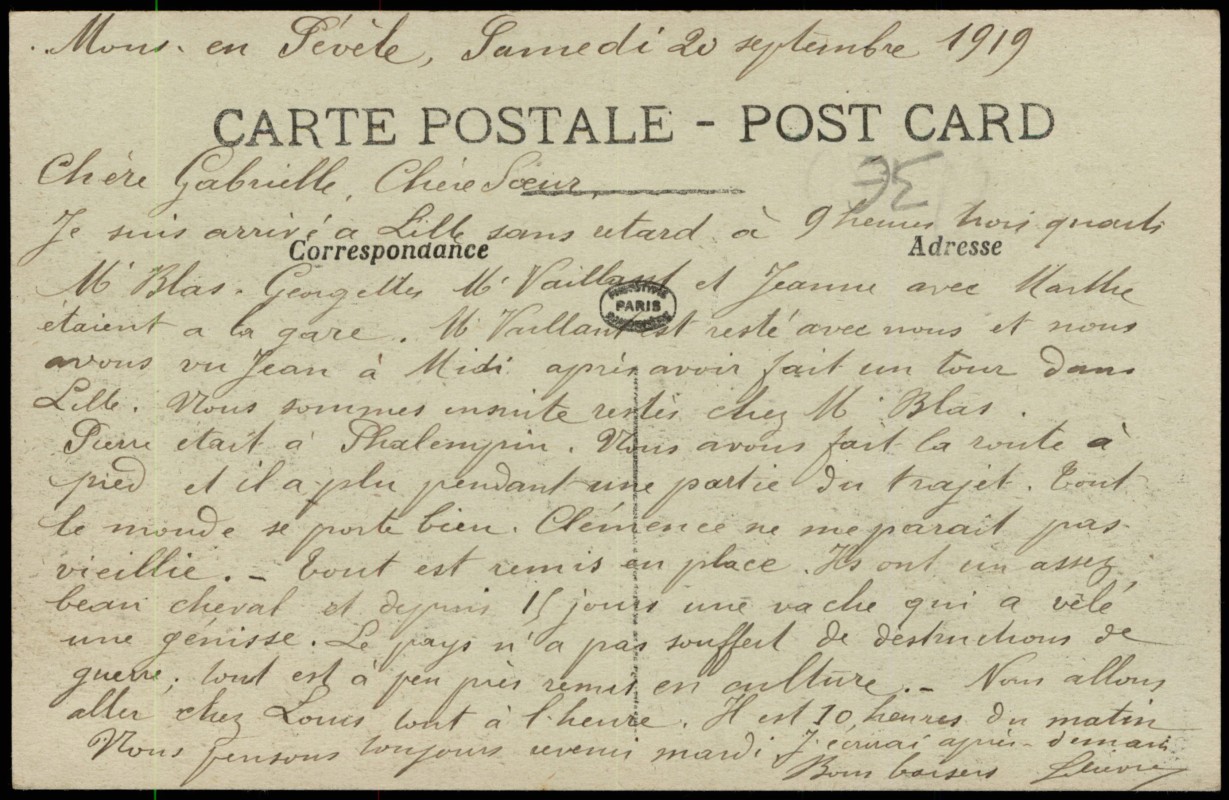 Mons. en Pévèle, Samedi 20 septembre 1919
CARTE POSTALE - POST CARD
Chère Gabrielle, Chère Sœur,
35
Je suis arrivé a Lille sans retard à 9 heures trois quarts
Correspondance
Adresse
Mr Blas. Georgettes Mr Vaillant et Jeanne avec Marthe
PARIS
étaient a la gare. Mr Vaillant est resté avec nous et nous
avons vu Jean à Midi après avoir fait un tour dans
Lille. Nous sommes ensuite restés chez Mr Blas.
Pierre était à Phalempin. Nous avons fait la route à
pied et il a plu pendant une partie du trajet. Tout
le monde se porte bien. Clémence ne me parait pas
vieillie. - Tout est remis en place. Ils ont un assez
beau cheval et depuis 15 jours une vache qui a vêlé
une génisse. Le pays n'a pas souffert de destructions de
guerre, tout est à peu près remis en culture. - Nous allons
aller chez Louis tout à l'heure. Il est 10 heures du matin
Nous pensons toujours revenir mardi J'écrirai après-demain.
Bons baisers